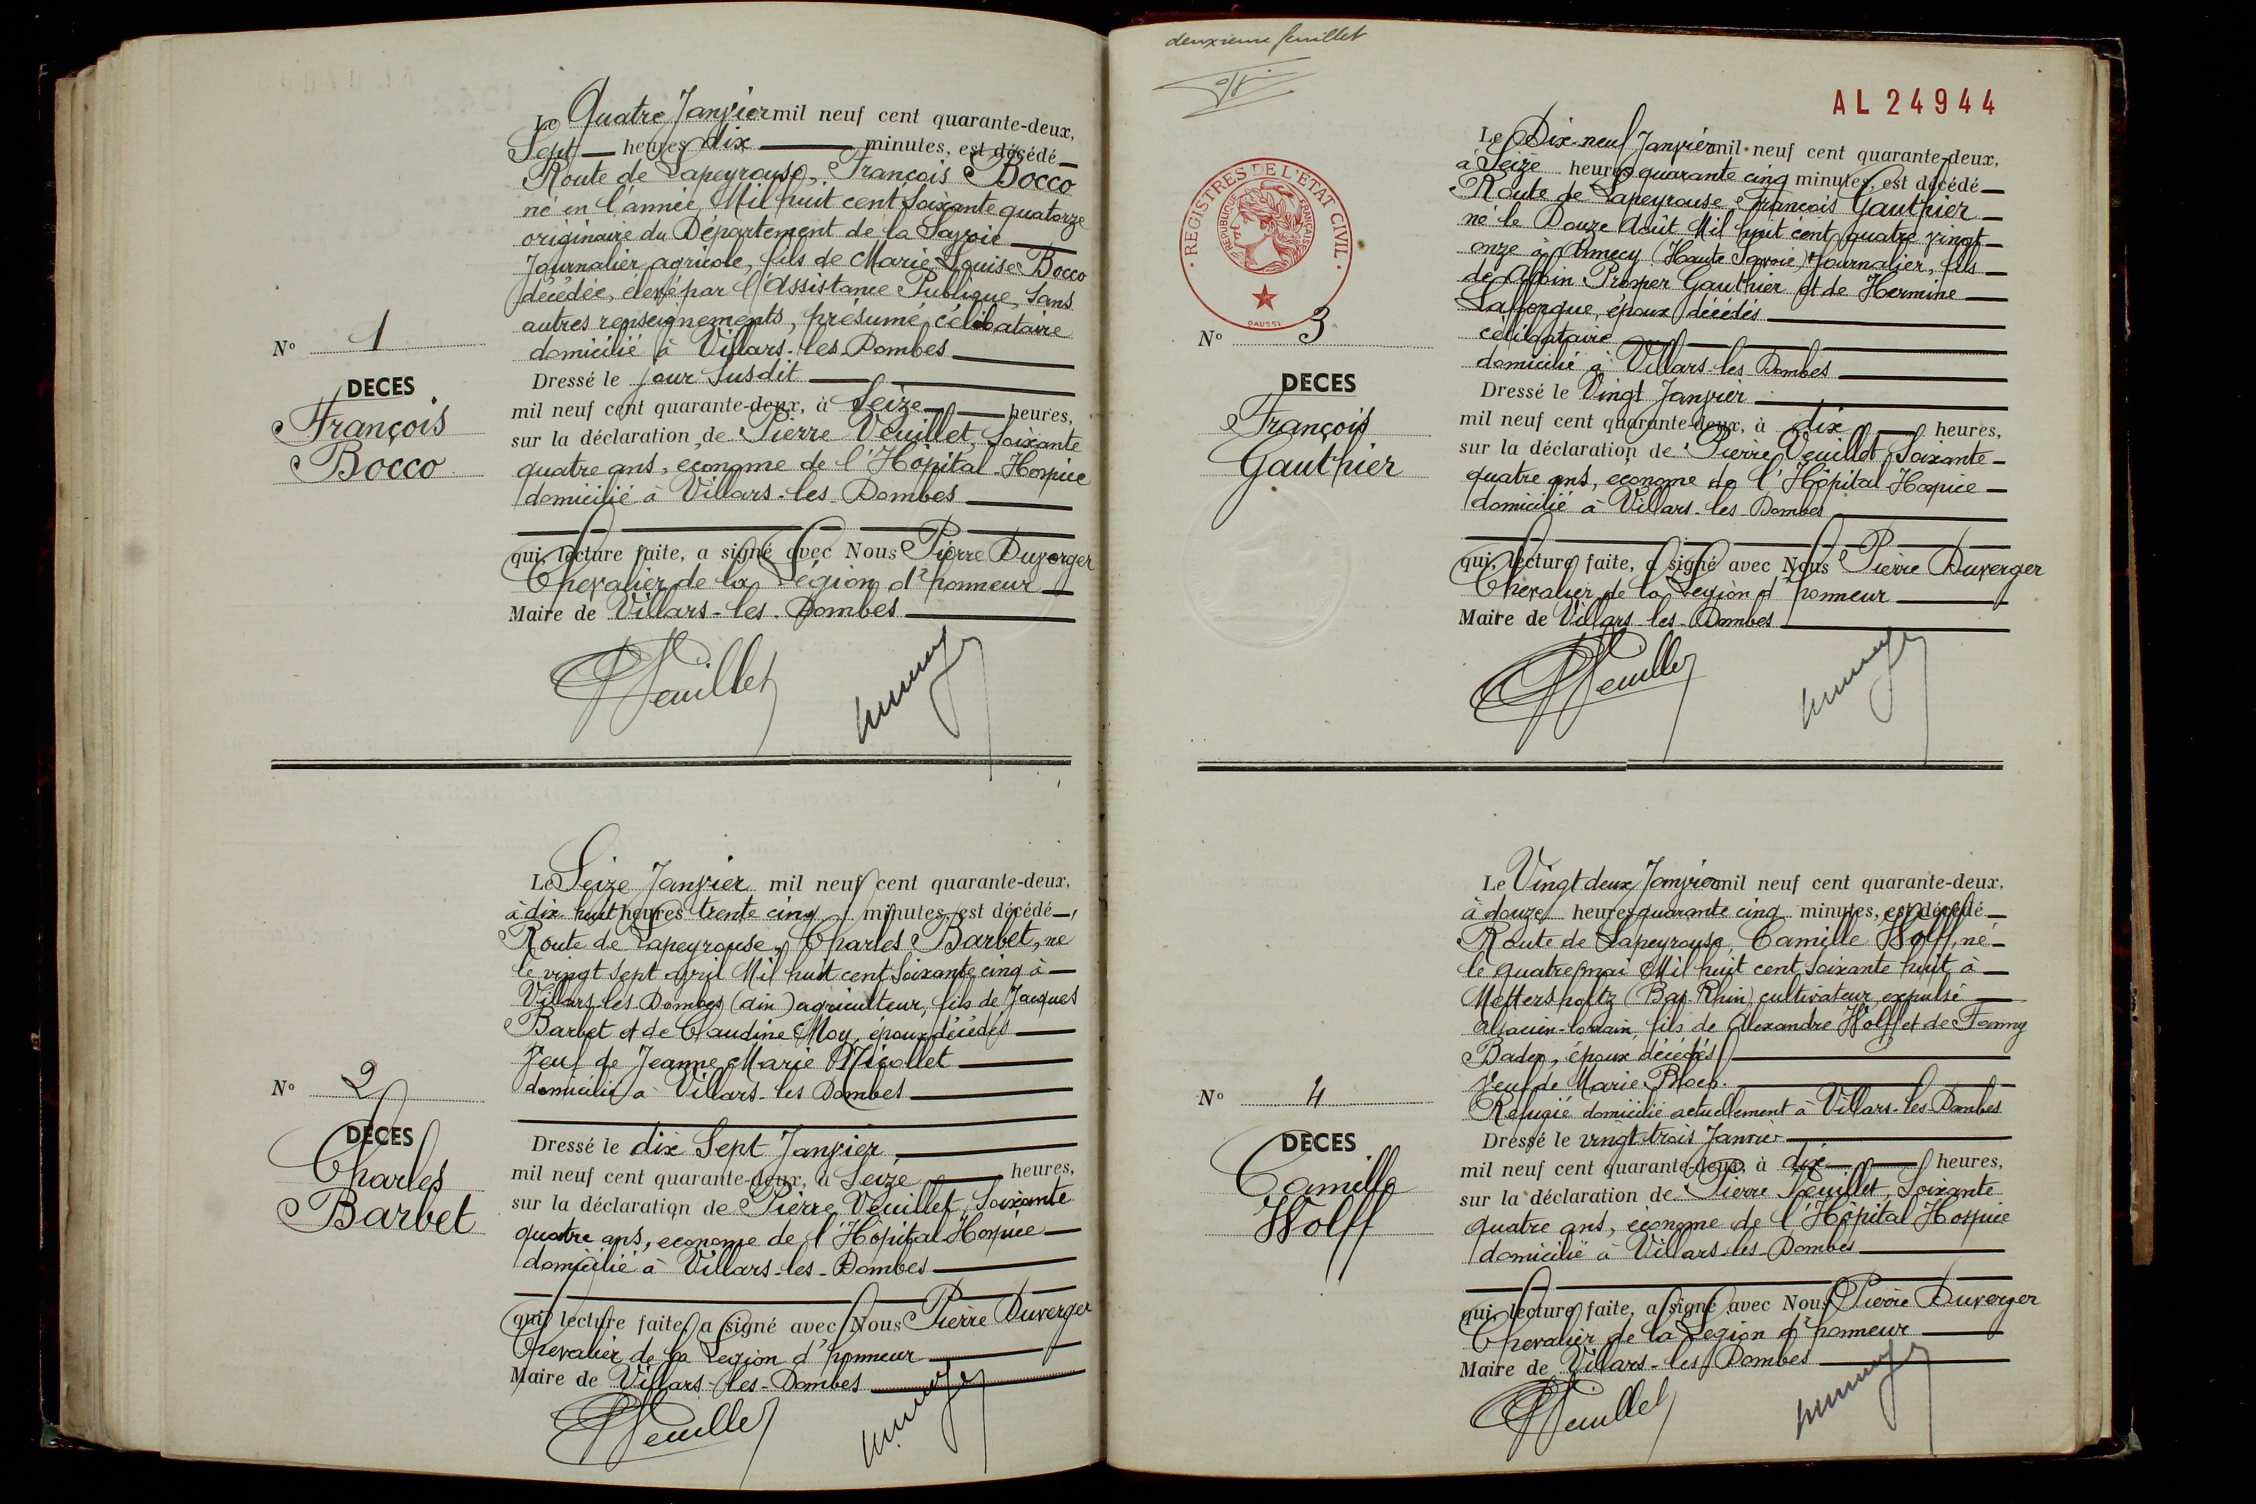 Le Quatre Janvier mil neuf cent quarante-deux,
Sept heures dix minutes, est décédé
Route de Lapeyrouse, François Bocco
né en l'année Mil huit cent Soixante quatorze
originaire du Département de la Savoie
Journalier agricole, fils de Marie Louise Bocco
décédée, élevé par l'Assistance Publique, Sans
autres renseignements, présumé célibataire
domicilié à Villars-les-Dombes
N° 1
DECES
François
Bocco
Dressé le jour Susdit
mil neuf cent quarante-deux, à Seize heures,
sur la déclaration de Pierre Veuillet, Soixante
quatre ans, économe de l'Hôpital-Hospice
domicilié à Villars-les-Dombes
qui, lecture faite, a signé avec Nous Pierre Duverger
Chevalier de la Légion d'honneur
Maire de Villars-les-Dombes
PVeuillet
Le Seize Janvier mil neuf cent quarante-deux,
à dix huit heures trente cinq minutes, est décédé
Route de Lapeyrouse, Charles Barbet, né
le vingt Sept avril Mil huit cent Soixante cinq à
Villars-les-Dombes (ain) agriculteur, fils de Jacques
Barbet et de Claudine Moy, époux décédés
Veuf de Jeanne Marie Nicollet
domicilié à Villars-les Dombes
N° 2
DECES
Charles
Barbet
Dressé le dix Sept Janvier
mil neuf cent quarante-deux, à Seize heures,
sur la déclaration de Pierre Veuillet, Soixante
quatre ans, économe de l'Hôpital-Hospice
domicilié à Villars-les-Dombes
qui, lecture faite, a signé avec Nous Pierre Duverger
Chevalier de la Légion d'honneur
Maire de Villars-les-Dombes
PVeuillet
deuxième feuillet
AL 24944
REGISTRES DE L'ETAT CIVIL
REPUBLIQUE FRANÇAISE
DAUSSY
Le Dix-neuf Janvier mil neuf cent quarante-deux,
à Seize heures quarante cinq minutes, est décédé
Route de Lapeyrouse, François Gauthier
né le Douze Août Mil huit cent quatre vingt
onze à Annecy (Haute Savoie) Journalier, fils
de Prosper Gauthier et de Hermine
époux décédés
célibataire
domicilié à Villars-les-Dombes
N° 3
DECES
François
Gauthier
Dressé le Vingt Janvier
mil neuf cent quarante-deux, à dix heures,
sur la déclaration de Pierre Veuillet, Soixante
quatre ans, économe de l'Hôpital-Hospice
domicilié à Villars-les-Dombes
qui, lecture faite, a signé avec Nous Pierre Duverger
Chevalier de la Légion d'honneur
Maire de Villars-les-Dombes
PVeuillet
Le Vingt deux Janvier mil neuf cent quarante-deux,
à douze heures quarante cinq minutes, est décédé
Route de Lapeyrouse, Camille Wolff, né
le quatre mai Mil huit cent Soixante huit à
Mottersholtz (Bas-Rhin) cultivateur, expulsé
alsacien-lorrain, fils de Alexandre Wolff et de Fanny
Bader, époux décédés
Veuf de Marie Bloch.
Réfugié domicilié actuellement à Villars-les Dombes
N° 4
DECES
Camille
Wolff
Dressé le vingt-trois Janvier
mil neuf cent quarante-deux, à dix heures,
sur la déclaration de Pierre Veuillet, Soixante
quatre ans, économe de l'Hôpital Hospice
domicilié à Villars-les-Dombes
qui, lecture faite, a signé avec Nous Pierre Duverger
Chevalier de la Légion d'honneur
Maire de Villars-les-Dombes
PVeuillet